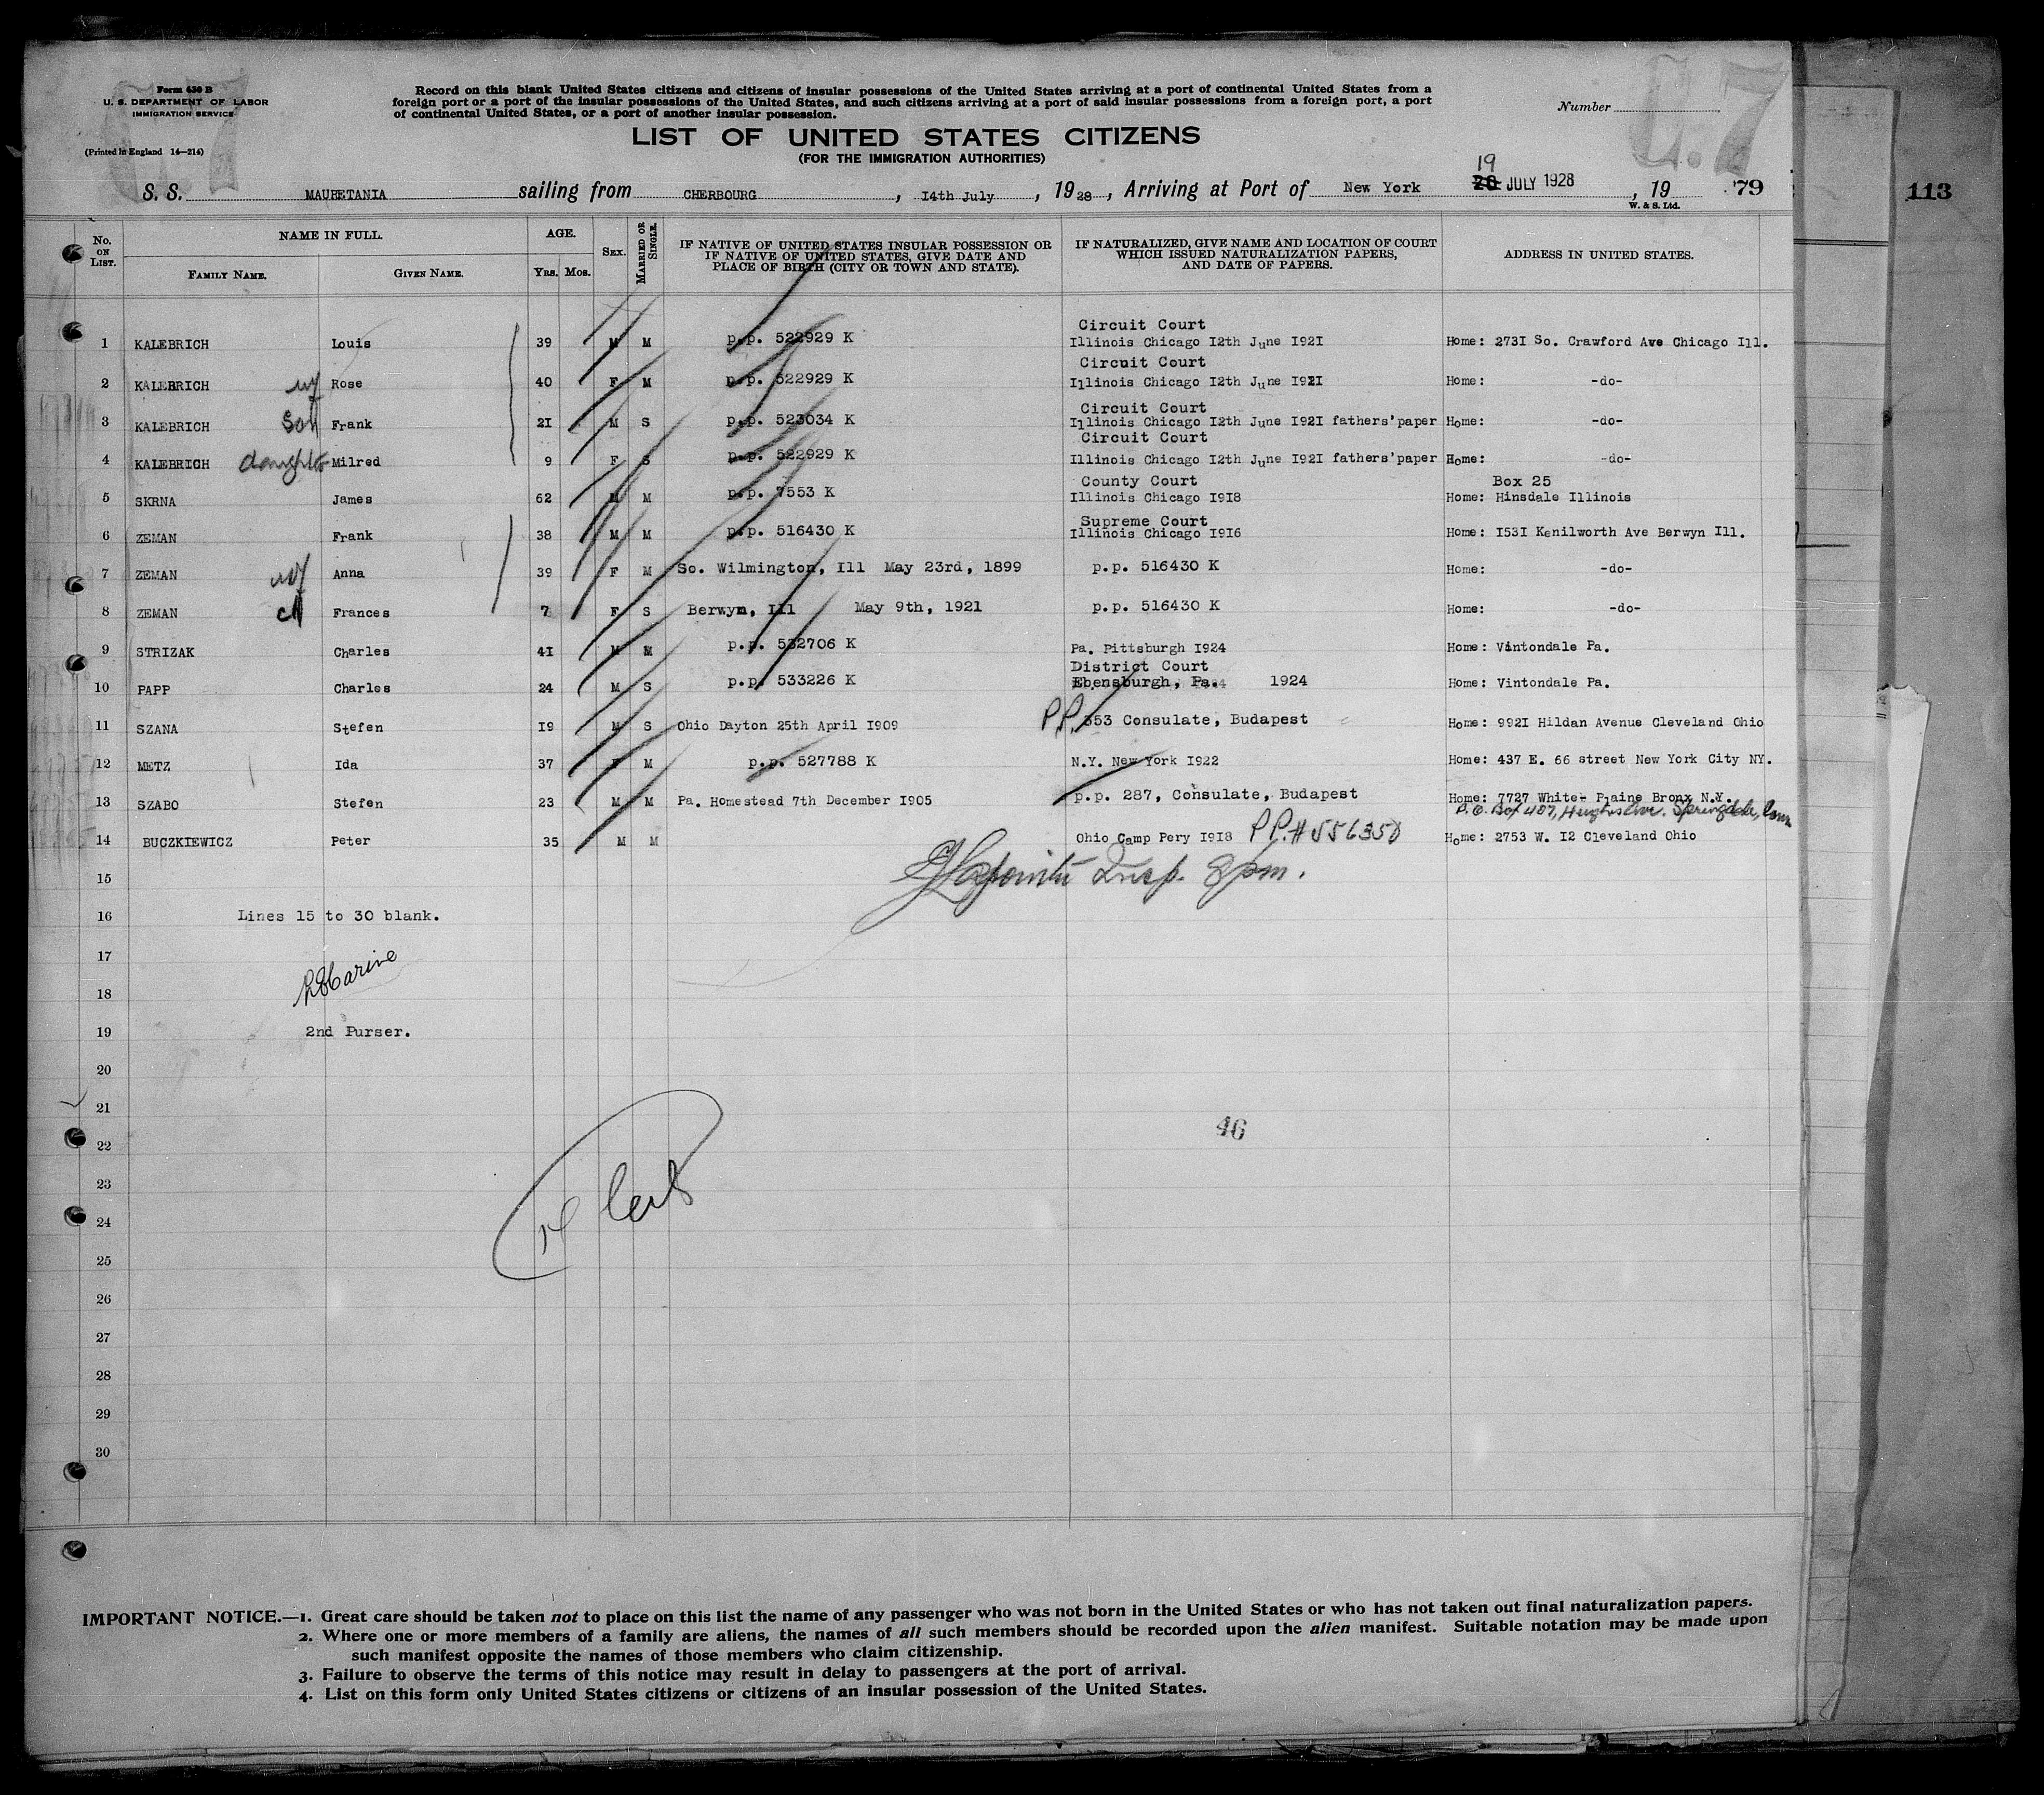 C.7
C.7
Form 630 B
U. S. DEPARTMENT OF LABOR
IMMIGRATION SERVICE
(Printed in England 14—214)
Record on this blank United States citizens and citizens of insular possessions of the United States arriving at a port of continental United States from a
foreign port or a port of the insular possessions of the United States, and such citizens arriving at a port of said insular possessions from a foreign port, a port
of continental United States, or a port of another insular possession.
Number
LIST OF UNITED STATES CITIZENS
(FOR THE IMMIGRATION AUTHORITIES)
19
S. S. MAURETANIA sailing from CHERBOURG, 14th July, 1928, Arriving at Port of New York 20 JULY 1928, 19 79
W. & S. Ltd.
113
No. ON LIST. NAME IN FULL. FAMILY NAME. GIVEN NAME. AGE. YRS. MOS. SEX. MARRIED OR SINGLE. IF NATIVE OF UNITED STATES INSULAR POSSESSION OR IF NATIVE OF UNITED STATES, GIVE DATE AND PLACE OF BIRTH (CITY OR TOWN AND STATE). IF NATURALIZED, GIVE NAME AND LOCATION OF COURT WHICH ISSUED NATURALIZATION PAPERS, AND DATE OF PAPERS. ADDRESS IN UNITED STATES.
Circuit Court
1 KALEBRICH Louis 39 M M p.p. 522929 K Illinois Chicago 12th June 1921 Home: 2731 So. Crawford Ave Chicago Ill.
Circuit Court
2 KALEBRICH wf Rose 40 F M p.p. 522929 K Illinois Chicago 12th June 1921 Home: -do-
Circuit Court
3 KALEBRICH Son Frank 21 M S p.p. 523034 K Illinois Chicago 12th June 1921 fathers'paper Home: -do-
Circuit Court
4 KALEBRICH daughter Milred 9 F S p.p. 522929 K Illinois Chicago 12th June 1921 fathers'paper Home: -do-
County Court Box 25
5 SKRNA James 62 M M p.p. 7553 K Illinois Chicago 1918 Home: Hinsdale Illinois
Supreme Court
6 ZEMAN Frank 38 M M p.p. 516430 K Illinois Chicago 1916 Home: 1531 Kenilworth Ave Berwyn Ill.
7 ZEMAN wf Anna 39 F M So. Wilmington, Ill May 23rd, 1899 p.p. 516430 K Home: -do-
8 ZEMAN Frances 7 F S Berwyn, Ill May 9th, 1921 p.p. 516430 K Home: -do-
9 STRIZAK Charles 41 M M p.p. 532706 K Pa. Pittsburgh 1924 Home: Vintondale Pa.
District Court
10 PAPP Charles 24 M S p.p. 533226 K Ebensburgh, Pa. 1924 Home: Vintondale Pa.
11 SZANA Stefen 19 M S Ohio Dayton 25th April 1909 P.P. 353 Consulate, Budapest Home: 9921 Hildan Avenue Cleveland Ohio
12 METZ Ida 37 F M p.p. 527788 K N.Y. New York 1922 Home: 437 E. 66 street New York City NY.
13 SZABO Stefen 23 M M Pa. Homestead 7th December 1905 p.p. 287, Consulate, Budapest Home: 7727 White- Plaine Bronx N.Y.
P.O. Box 407, Ave. Springdale, Conn
14 BUCZKIEWICZ Peter 35 M M Ohio Camp Pery 1918 P.P.# 556350 Home: 2753 W. 12 Cleveland Ohio
15 Insp. 8 pm.
16 Lines 15 to 30 blank.
17
18
19 2nd Purser.
20
21
22 46
23
24
25
26
27
28
29
30
IMPORTANT NOTICE.—1. Great care should be taken not to place on this list the name of any passenger who was not born in the United States or who has not taken out final naturalization papers.
2. Where one or more members of a family are aliens, the names of all such members should be recorded upon the alien manifest. Suitable notation may be made upon
such manifest opposite the names of those members who claim citizenship.
3. Failure to observe the terms of this notice may result in delay to passengers at the port of arrival.
4. List on this form only United States citizens or citizens of an insular possession of the United States.